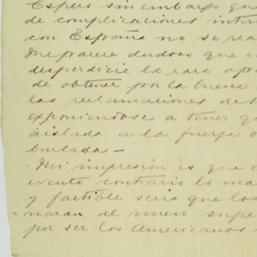 Espero sin embargo que
de complicaciones inter
con España no se rea
Me parece dudoso que e
desperdicie la rara opo
de obtener por la buena
las reclamaciones des
exponiéndose a tener qu
aislada a la fuerza o
burlada —
Mi impresion es que e
evento contrario lo ma
y factible seria que los
naran al nuevo supe
por ser los Americanos